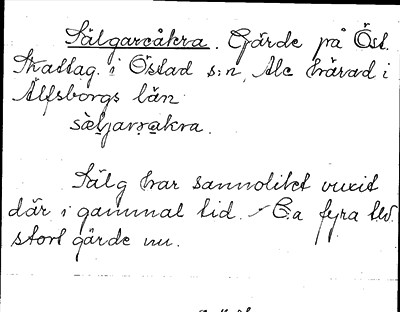 Sälgaråkra. Gärde på Öst.
Skattag. i Östad s:n, Ale härad i
Älfsborgs län
sæ̀ljaråkra.
Sälg har sannolikt vuxit
där i gammal tid. - C:a fyra tld.
stort gärde nu.